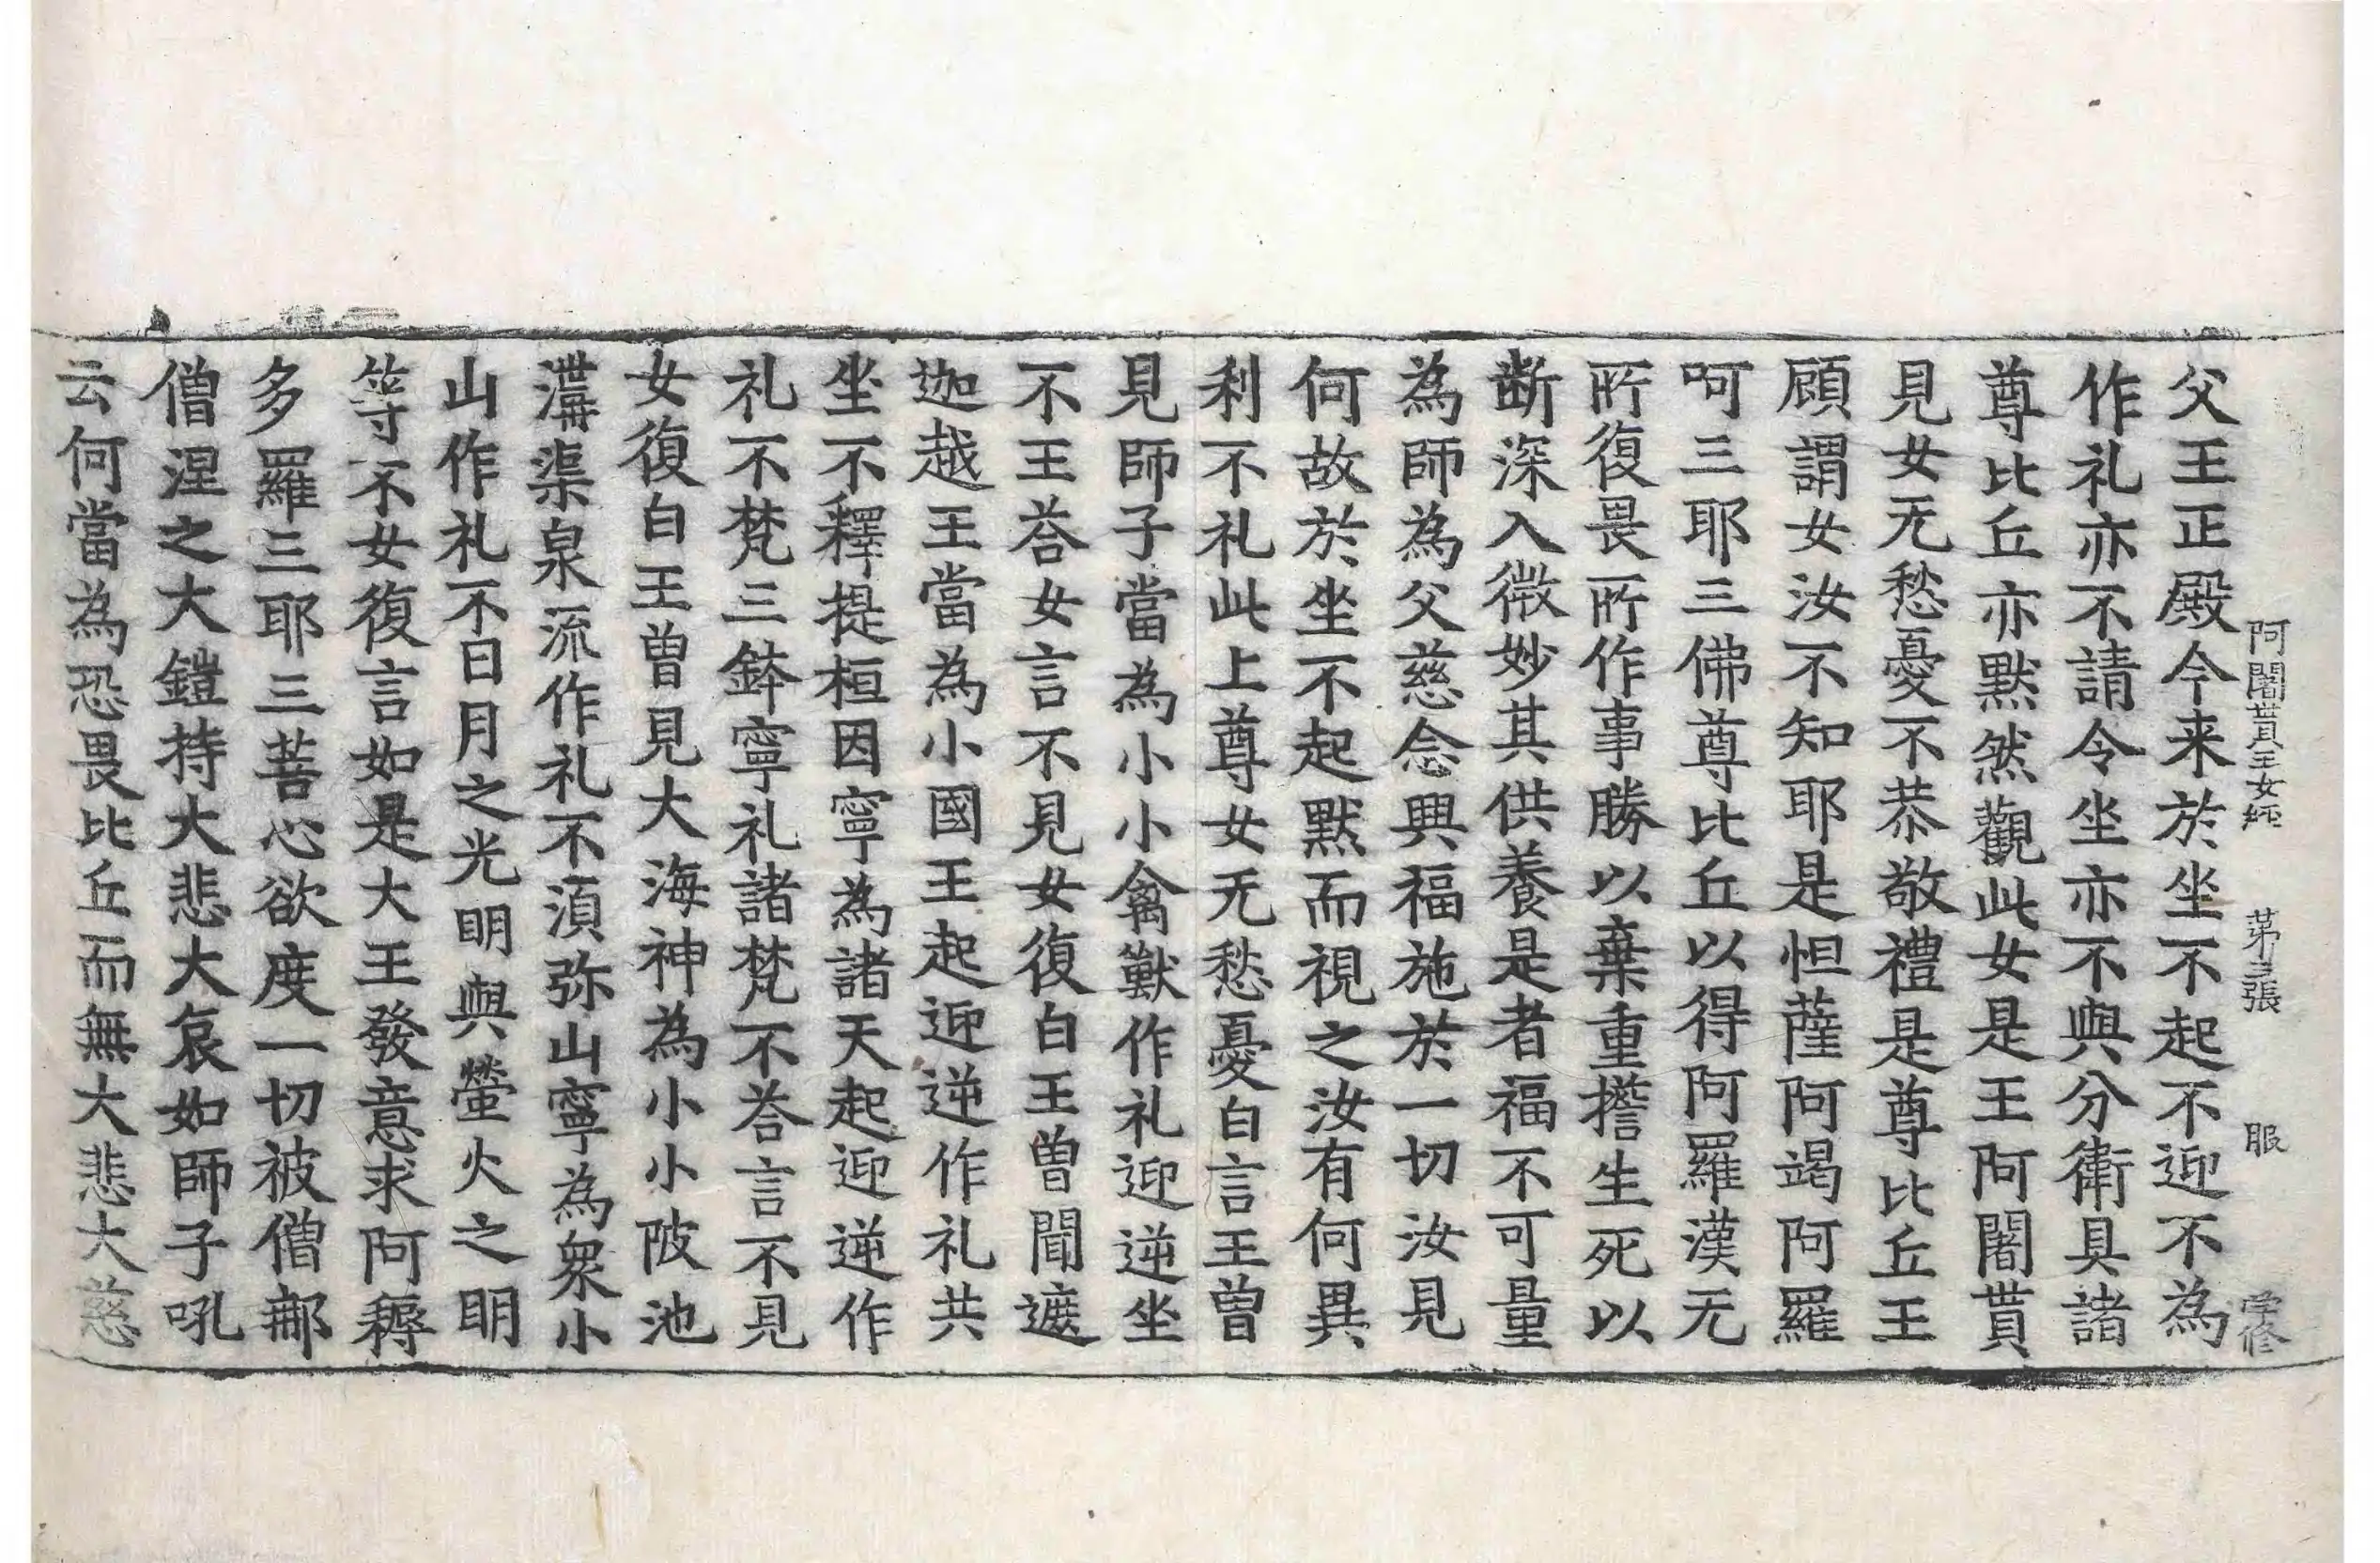 阿闍貰王女経 苐三張 服 学修
父王正殿今来於坐不起不迎不為
作礼亦不請令坐亦不與分衛具諸
尊比丘亦黙然觀此女是王阿闍貰
見女无愁憂不恭敬禮是尊比丘王
顧謂女汝不知耶是怛薩阿竭阿羅
呵三耶三佛尊比丘以得阿羅漢无
所復畏所作事勝以棄重擔生死以
断深入微妙其供養是者福不可量
為師為父慈念興福施於一切汝見
何故於坐不起黙而視之汝有何異
利不礼此上尊女无愁憂白言王曽
見師子當為小小禽獸作礼迎逆坐
不王荅女言不見女復白王曽聞遮
迦越王當為小國王起迎逆作礼共
坐不釋提桓因寧為諸天起迎逆作
礼不梵三鉢寧礼諸梵不荅言不見
女復白王曽見大海神為小小陂池
溝渠泉流作礼不湏弥山寧為衆小
山作礼不日月之光明與螢火之明
等不女復言如是大王發意求阿耨
多羅三耶三菩心欲度一切被僧那
僧涅之大鎧持大悲大哀如師子吼
云何當為恐畏比丘而無大悲大慈